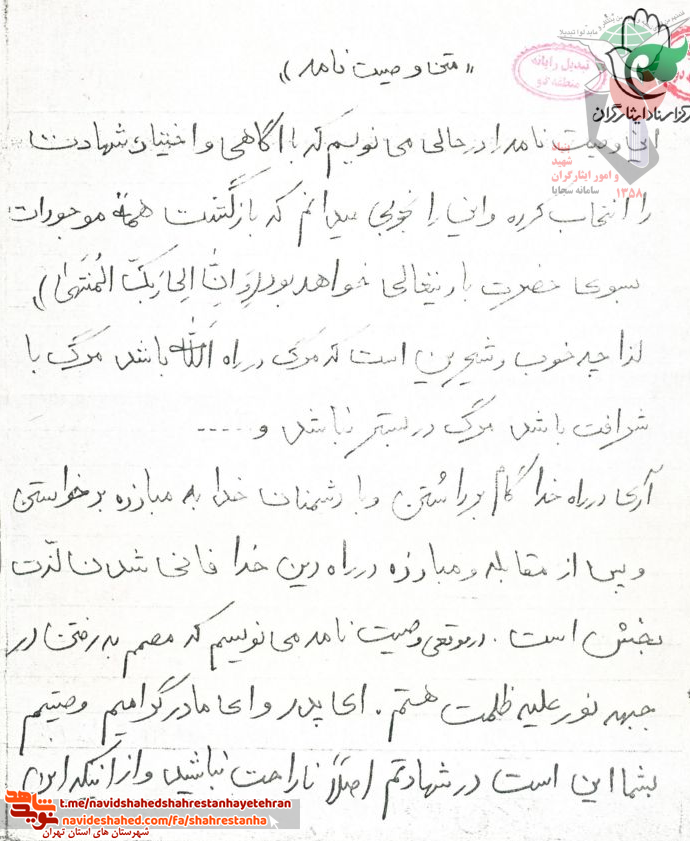 تبدیل رایانه
مرکز اسناد ایثارگران
شهید
و امور ایثارگران
سامانه سجایا
۱۳۵۸
«متن وصیت نامه»
این وصیت نامه را در حالی می نویسم که با آگاهی و اختیار شهادت
را انتخاب کرده و این را بخوبی میدانم که بازگشت همهٔ موجودات
بسوی حضرت باریتعالی خواهد بود (وَاِنَّ اِلی رَبِّکَ الْمُنتَهَیٰ)
لذا چه خوب و شیرین است که مرگ در راه الله باشد مرگ با
شرافت باشد مرگ در بستر نباشد و ....
آری در راه خدا گام برداشتن و با دشمنان خدا به مبارزه برخواستن
و پس از مقابله و مبارزه در راه دین خدا فانی شدن لذّت
بخش است . در موقعی وصیت نامه می نویسم که مصمم به رفتن در
جبهه نور علیه ظلمت هستم . ای پدر و ای مادر گرامیم وصیتم
بشما این است در شهادتم اصلاً ناراحت نباشید و از اینکه
شاهد
نوید
t.me/navidshahedshahrestanhayetehran
navideshahed.com/fa/shahrestanha
شهرستان های استان تهران